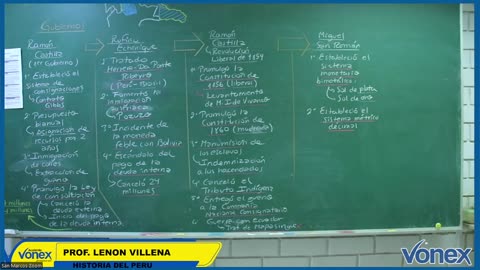 Gobiernos
Ramón
Castilla
(1er Gobierno)
1º Estableció el
sistema de
consignaciones
Contrato
Gibbs
2º Presupuesto
bianual
Asignación de
recursos por 2
años
3º Inmigración de
culíes
Extracción de
guano
4º Promulgó la Ley
de Consolidación
Canceló la
deuda externa
Inicia el pago
de la deuda interna
Rufino
Echenique
1º Tratado
Herrera-Da Ponte
Ribeyro
(Perú-Brasil)
2º Fomentó la
inmigración
Pozuzo
3º Incidente de
la moneda
feble con Bolivia
4º Escándalo del
pago de la
deuda interna
Canceló 24
millones
Ramón
Castilla
Revolución
Liberal de 1854
1º Promulgó la
Constitución de
1856 (liberal)
Levantamiento
de M.I de Vivanco
2º Promulgó la
Constitución de
1860 (moderada)
3º Manumisión de
los esclavos
Indemnización
a los hacendados
4º Canceló el
Tributo Indígena
5º Entregó el guano
a la Compañía
Nacional Consignataria
6º Guerra con Ecuador
Trat. de Mapasingue
Miguel
San Román
1º Estableció el
sistema
monetario
bimetálico:
Sol de plata
Sol de oro
2º Estableció el
sistema métrico
decimal
VONEX
PROF. LENON VILLENA
HISTORIA DEL PERU
San Marcos Zoom
VONEX